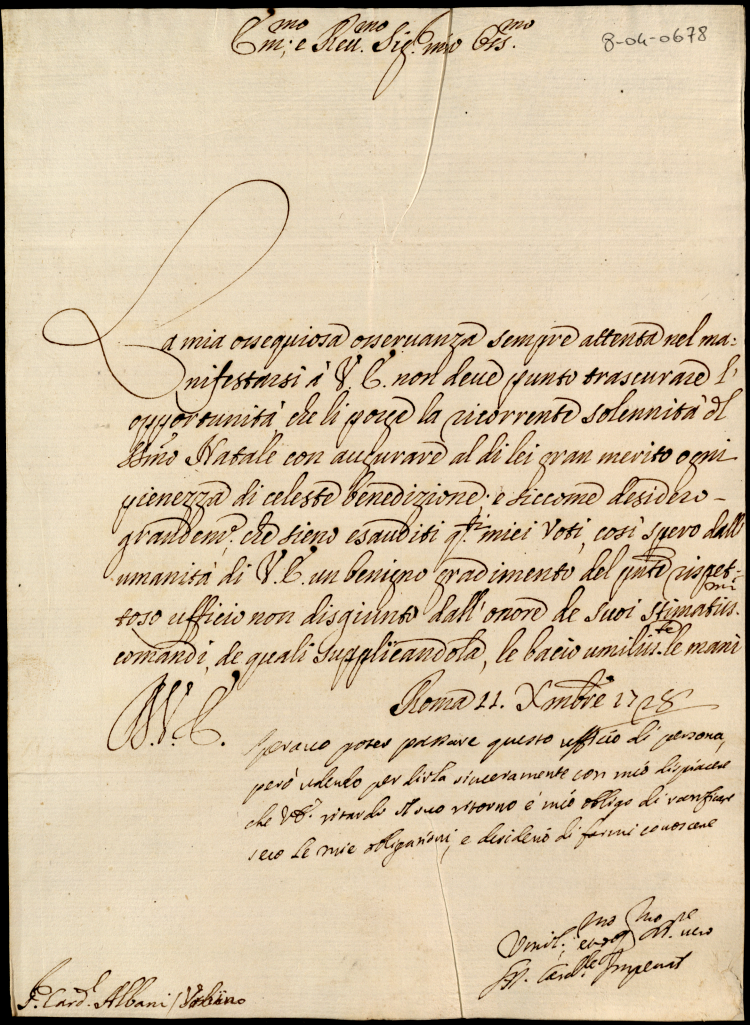 Em.mo e Reu.mo Sig.r mio Oss.mo
8-04-0678
La mia ossequiosa osseruanza sempre attenta nel ma-
nifestarsi à V. E. non deue punto trascurare l'
opportunità, che li porge la ricorrente solennità del
SSmo Natale con augurare al di lei gran merito ogni
pienezza di celeste benedizione; e siccome desidero
grandem.e, che sieno esauditi q.ti miei Voti, così spero dall'
umanità di V. E. un benigno gradimento del pnte rispet-
toso ufficio non disgiunto dall'onore de suoi stimatiss.mi
comandi, de quali supplicandola, le bacio umiliss.te le mani
Roma 11. Xmbre 1728
D. V. E.
Sperauo poter passare questo ufficio di persona,
però uedendo per dirla sinceramente con mio dispiacere
che V.E. ritardi il suo ritorno è mio obligo di ratificare
seco le mie obligazioni, e desiderio di farmi conoscere
Umil.mo e deuo.mo Se.re uero
G. R. Card.le Imperiali
S.r Card.l Albani / Urbino